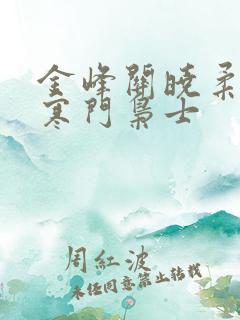 金峰關曉柔
寒門梟士
周紅波
未经同意禁止转载